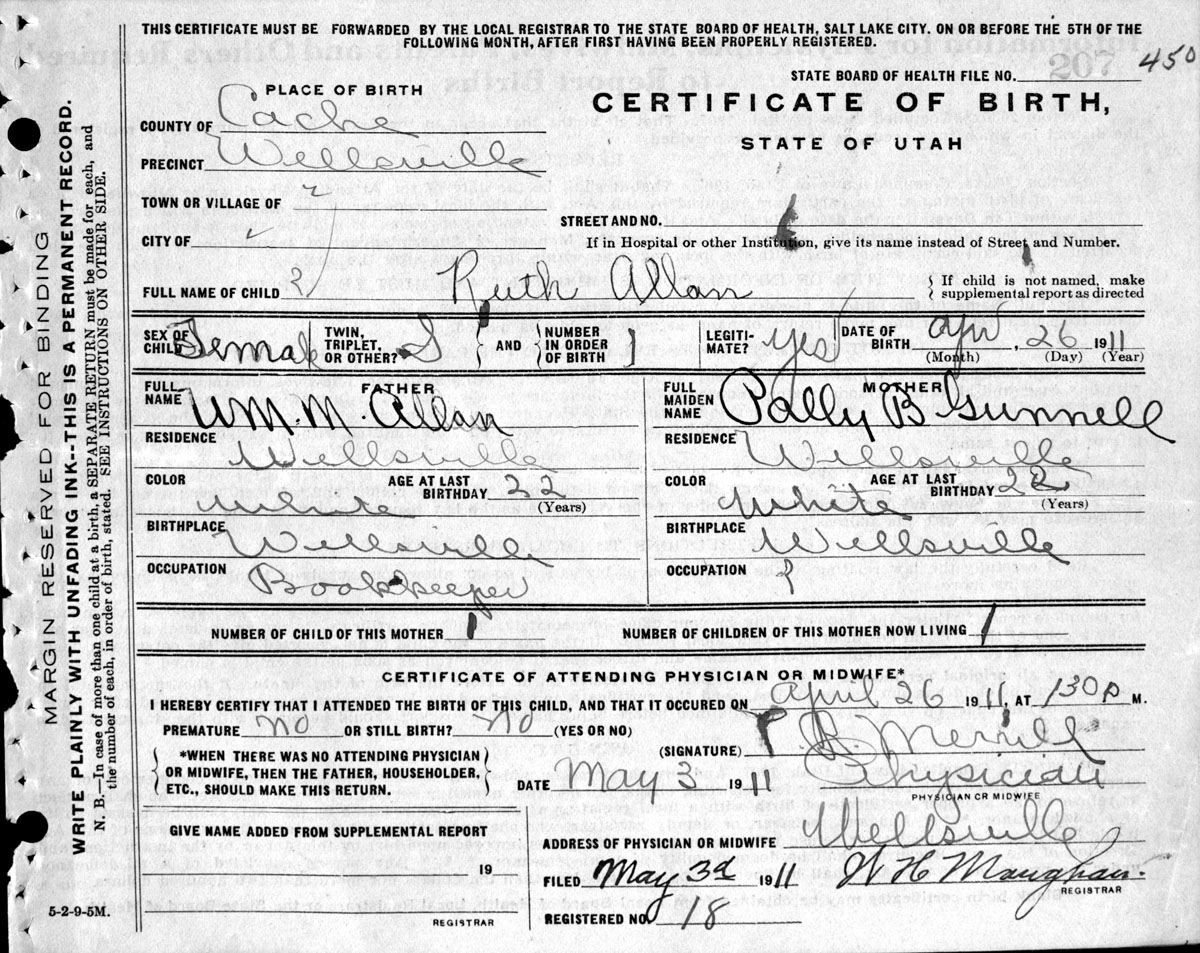 THIS CERTIFICATE MUST BE FORWARDED BY THE LOCAL REGISTRAR TO THE STATE BOARD OF HEALTH, SALT LAKE CITY. ON OR BEFORE THE 5TH OF THE
FOLLOWING MONTH, AFTER FIRST HAVING BEEN PROPERLY REGISTERED.
207
450
STATE BOARD OF HEALTH FILE NO.
PLACE OF BIRTH
CERTIFICATE OF BIRTH,
STATE OF UTAH
COUNTY OF Cache
PRECINCT Wellsville
TOWN OR VILLAGE OF
STREET AND NO.
CITY OF
If in Hospital or other Institution, give its name instead of Street and Number.
FULL NAME OF CHILD Ruth Allan { If child is not named, make supplemental report as directed
SEX OF CHILD Female TWIN, TRIPLET, OR OTHER? S { AND } { NUMBER IN ORDER OF BIRTH } LEGITI-MATE? yes DATE OF BIRTH Apr, 26 1911
(Month) (Day) (Year)
FATHER
FULL NAME Wm. M. Allan
RESIDENCE Wellsville
COLOR White AGE AT LAST BIRTHDAY 22 (Years)
BIRTHPLACE Wellsville
OCCUPATION Bookkeeper
MOTHER
FULL MAIDEN NAME Polly B Gunnell
RESIDENCE Wellsville
COLOR White AGE AT LAST BIRTHDAY 22 (Years)
BIRTHPLACE Wellsville
OCCUPATION
NUMBER OF CHILD OF THIS MOTHER 1 NUMBER OF CHILDREN OF THIS MOTHER NOW LIVING 1
CERTIFICATE OF ATTENDING PHYSICIAN OR MIDWIFE*
I HEREBY CERTIFY THAT I ATTENDED THE BIRTH OF THIS CHILD, AND THAT IT OCCURED ON April 26 1911, AT 130 P M.
PREMATURE No OR STILL BIRTH? No (YES OR NO)
(SIGNATURE) Merrill
*WHEN THERE WAS NO ATTENDING PHYSICIAN OR MIDWIFE, THEN THE FATHER, HOUSEHOLDER, ETC., SHOULD MAKE THIS RETURN.
DATE May 3 1911 Physician
PHYSICIAN OR MIDWIFE
GIVE NAME ADDED FROM SUPPLEMENTAL REPORT
ADDRESS OF PHYSICIAN OR MIDWIFE Wellsville
19
FILED May 3d 1911 W H Maughan
REGISTRAR
REGISTERED NO. 18
5-2-9-5M.
REGISTRAR
MARGIN RESERVED FOR BINDING
WRITE PLAINLY WITH UNFADING INK--THIS IS A PERMANENT RECORD.
N. B.—In case of more than one child at a birth, a SEPARATE RETURN must be made for each, and
the number of each, in order of birth, stated. SEE INSTRUCTIONS ON OTHER SIDE.